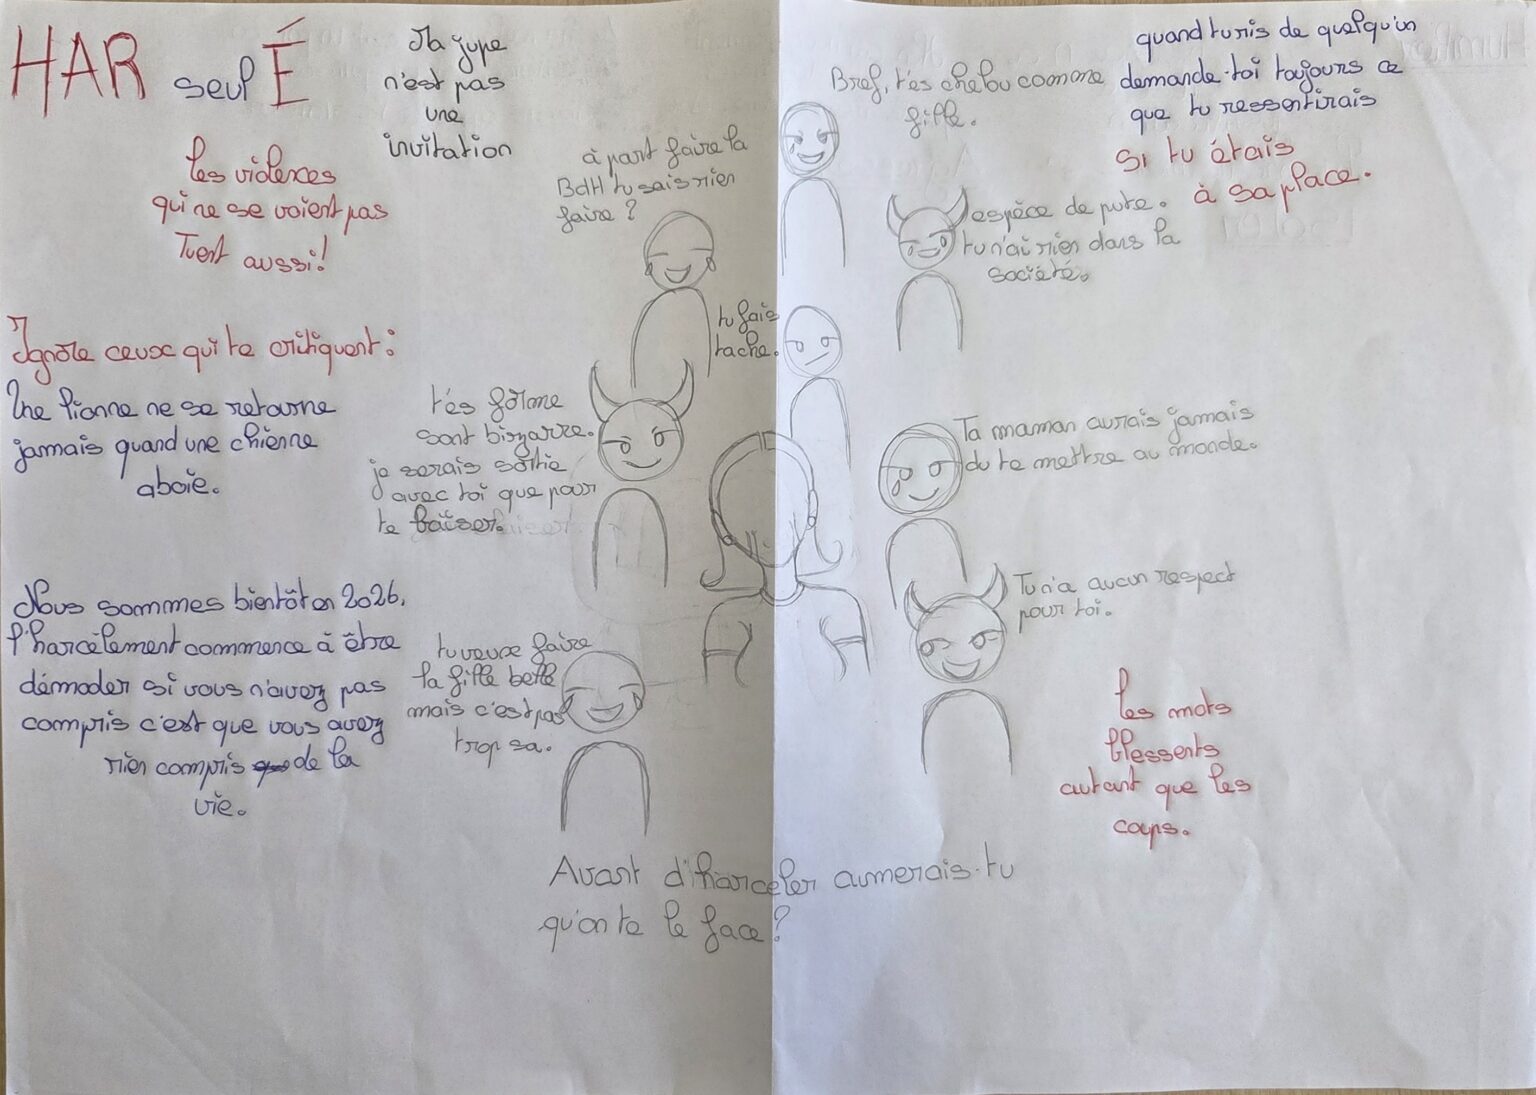 HAR seul É
Ma jupe
n'est pas
une
invitation
les violences
qui ne se voient pas
Tuent aussi!
Ignore ceux qui te critiquent :
Une lionne ne se retourne
jamais quand une chienne
aboie.
Nous sommes bientôt en 2026,
l'harcèlement commence à être
démoder si vous n'avez pas
compris c'est que vous avez
rien compris de la
vie.
à part faire la
BdH tu sais rien
faire ?
tu fais
tache.
t'es forme
sont bizarre.
je serais sortie
avec toi que pour
te baiser.
tu veux faire
la fille belle
mais c'est pas
trop sa.
Bref, t'es chelou comme
fille.
quand tu ris de quelqu'un
demande-toi toujours ce
que tu ressentirais
si tu étais
à sa place.
espèce de pute.
tu n'ai rien dans la
société.
Ta maman aurais jamais
du te mettre au monde.
Tu n'a aucun respect
pour toi.
les mots
blessents
autant que les
coups.
Avant d'harceler aimerais-tu
qu'on te le face ?